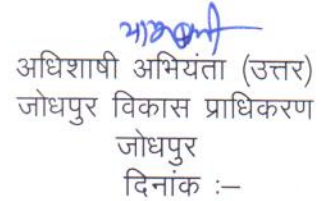 अधिशाषी अभियंता (उत्तर)
जोधपुर विकास प्राधिकरण
जोधपुर
दिनांक :–